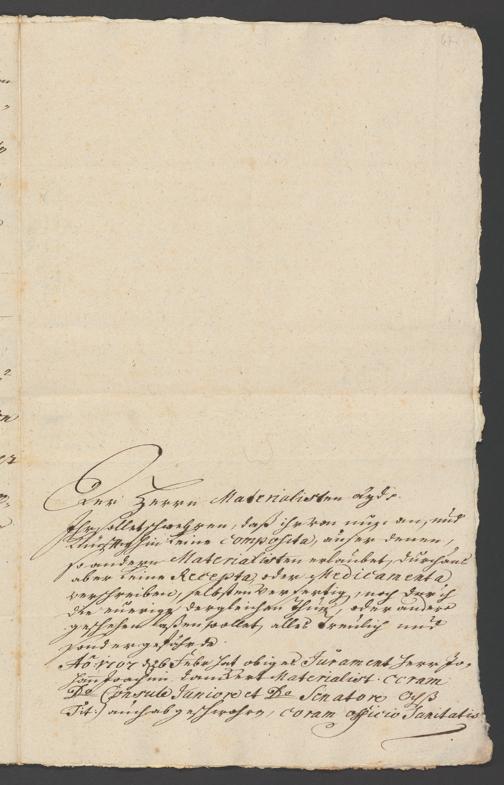 Der Herrn Materialisten Eydt.
Ihr sollet schwehren, daß ihr von nun an, und
Künfftighin keine Composita, außer denen,
so andern Materialisten erlaubet, durchaus
aber keine Recepta, oder Medicamenta
verschreiben, selbsten verfertig, noch durch
die eurige dergleichen thun, oder andere
geschehen laßen wollet, alles treulich und
sonder gefährde
Ao. 1707 d. 26 Febr. hat obiges Jurament Herr Jo-
hann Joachim Materialist coram
Do. Consule Juniore et Do. Senatore
Tit:) auch abgeschworen, coram officio Sanitatis